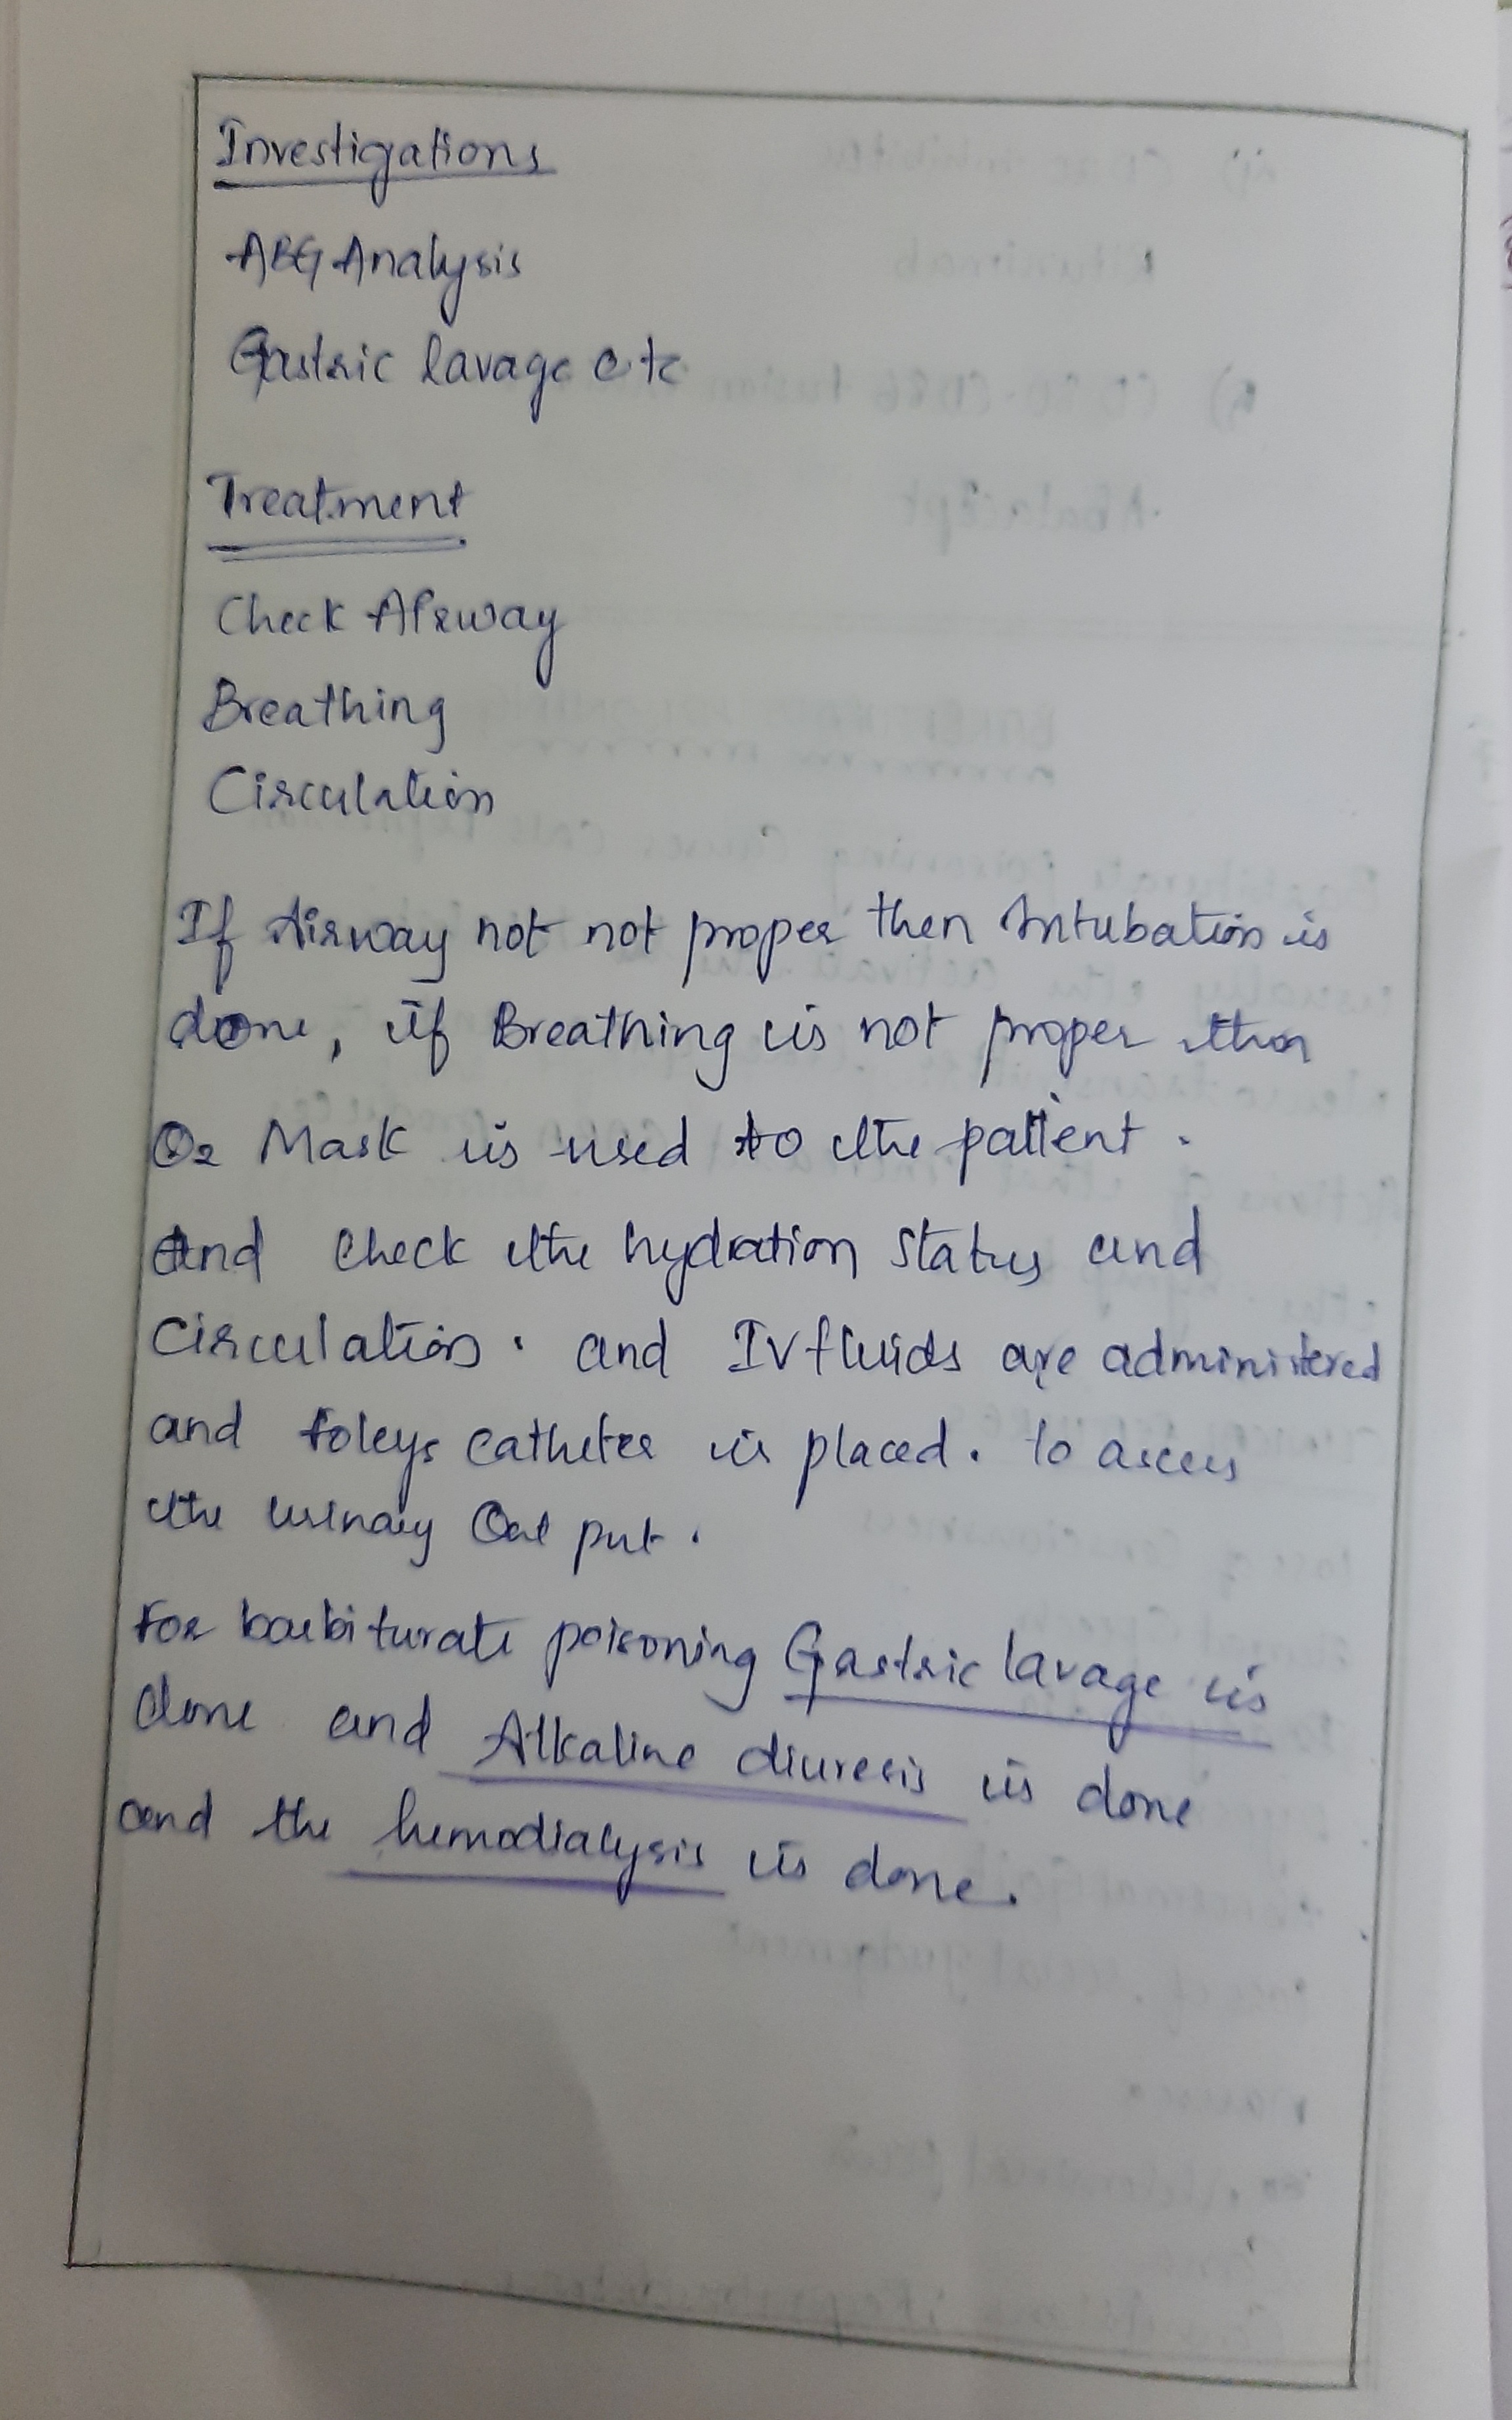 Investigations
ABG Analysis
Gastric lavage etc
Treatment
Check Airway
Breathing
Circulation
If Airway not not proper then Intubation is
done, if Breathing is not proper then
O2 Mask is used to the patient.
And check the hydration status and
Circulation. and IV fluids are administered
and foleys catheter is placed. to assess
the urinary Out put.
For barbiturate poisoning Gastric lavage is
done and Alkaline diuresis is done
and the hemodialysis is done.